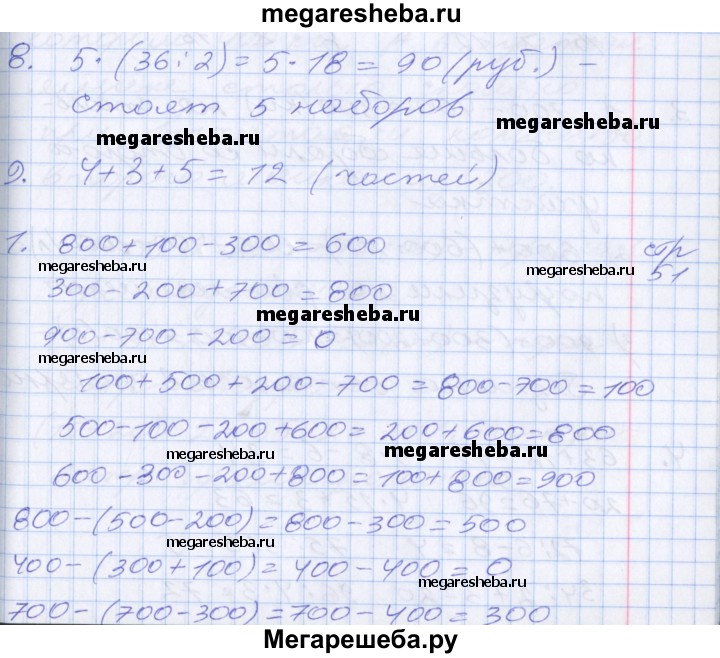 megaresheba.ru
8. 5·(36:2)=5·18=90(руб.) –
стоят 5 наборов
megaresheba.ru
megaresheba.ru
9. 4+3+5=12 (частей)
1. 800+100-300=600
стр
51
megaresheba.ru
megaresheba.ru
300-200+700=800
megaresheba.ru
900-700-200=0
megaresheba.ru
100+500+200-700=800-700=100
500-100-200+600=200+600=800
megaresheba.ru
megaresheba.ru
600-300-200+800=100+800=900
800-(500-200)=800-300=500
megaresheba.ru
400-(300+100)=400-400=0
megaresheba.ru
700-(700-300)=700-400=300
Мегарешеба.ру